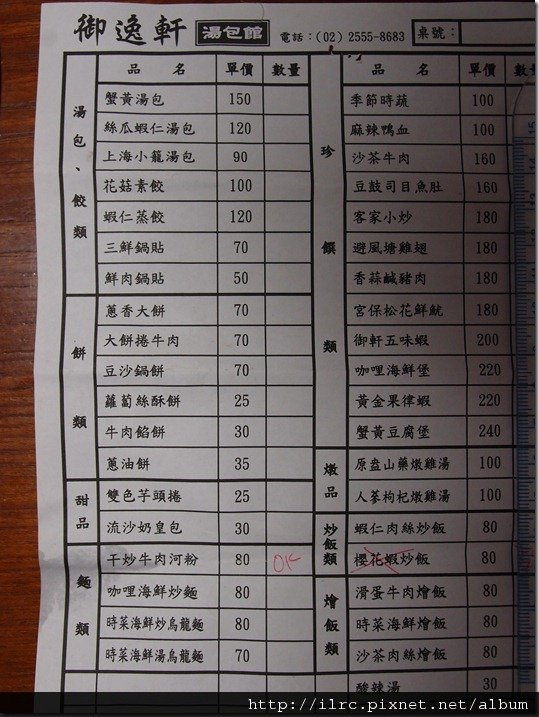 御逸軒 湯包館 電話：(02) 2555-8683 桌號：
品名 單價 數量 品名 單價 數量
湯包、餃類
蟹黃湯包 150
絲瓜蝦仁湯包 120
上海小籠湯包 90
花菇素餃 100
蝦仁蒸餃 120
三鮮鍋貼 70
鮮肉鍋貼 50
餅類
蔥香大餅 70
大餅捲牛肉 70
豆沙鍋餅 70
蘿蔔絲酥餅 25
牛肉餡餅 30
蔥油餅 35
甜品
雙色芋頭捲 25
流沙奶皇包 30
麵類
干炒牛肉河粉 80 OK
咖哩海鮮炒麵 80
時菜海鮮炒烏龍麵 80
時菜海鮮湯烏龍麵 70
珍饌類
季節時蔬 100
麻辣鴨血 100
沙茶牛肉 160
豆鼓司目魚肚 160
客家小炒 180
避風塘雞翅 180
香蒜鹹豬肉 180
宮保松花鮮魷 180
御軒五味蝦 200
咖哩海鮮堡 220
黃金果律蝦 220
蟹黃豆腐堡 240
燉品
原盅山藥燉雞湯 100
人蔘枸杞燉雞湯 100
炒飯類
蝦仁肉絲炒飯 80
櫻花蝦炒飯 80
燴飯類
滑蛋牛肉燴飯 80
時菜海鮮燴飯 80
沙茶肉絲燴飯 80
酸辣湯 30
http://ilrc.pixnet.net/album